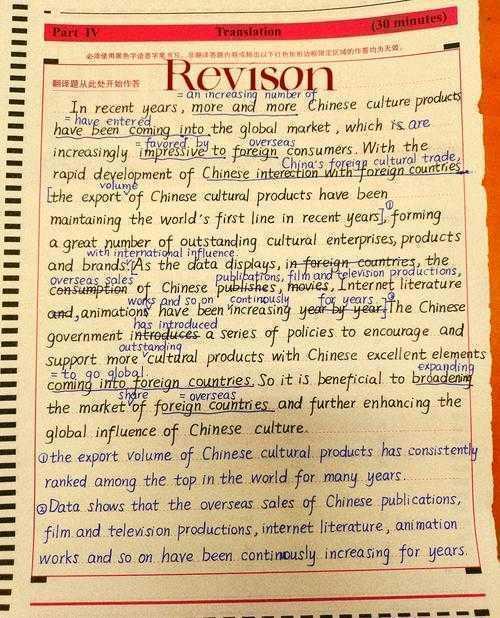 Part IV Translation (30 minutes)
必须使用黑色字迹签字笔书写，非翻译答题内容或超出以下红色矩形边框限定区域的作答均为无效。
翻译题从此处开始作答
Revison
= an increasing number of
In recent years, more and more Chinese culture products
= have entered
have been coming into the global market, which is are
= favored by overseas
increasingly impressive to foreign consumers. With the
China's foreign cultural trade,
rapid development of Chinese interection with foreign countries
volume
[the export of Chinese cultural products have been
maintaining the world's first line in recent years]①, forming
a great number of outstanding cultural enterprises, products
with international influence
and brands. [As the data displays, in foreign countries, the
overseas sales publications, film and television productions,
consumption of Chinese publishes, movies, Internet literature
works and so on continously for years
and, animations have been increasing year by year]② The Chinese
has introduced
government introduces a series of policies to encourage and
outstanding
support more cultural products with Chinese excellent elements
= to go global. expanding
coming into foreign countries. So it is beneficial to broadening
share = overseas
the market of foreign countries and further enhancing the
global influence of Chinese culture.
①the export volume of Chinese cultural products has consistently
ranked among the top in the world for many years.
②Data shows that the overseas sales of Chinese publications,
film and television productions, internet literature, animation
works and so on have been continuously increasing for years.